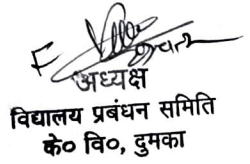 अध्यक्ष
विद्यालय प्रबंधन समिति
के० वि०, दुमका